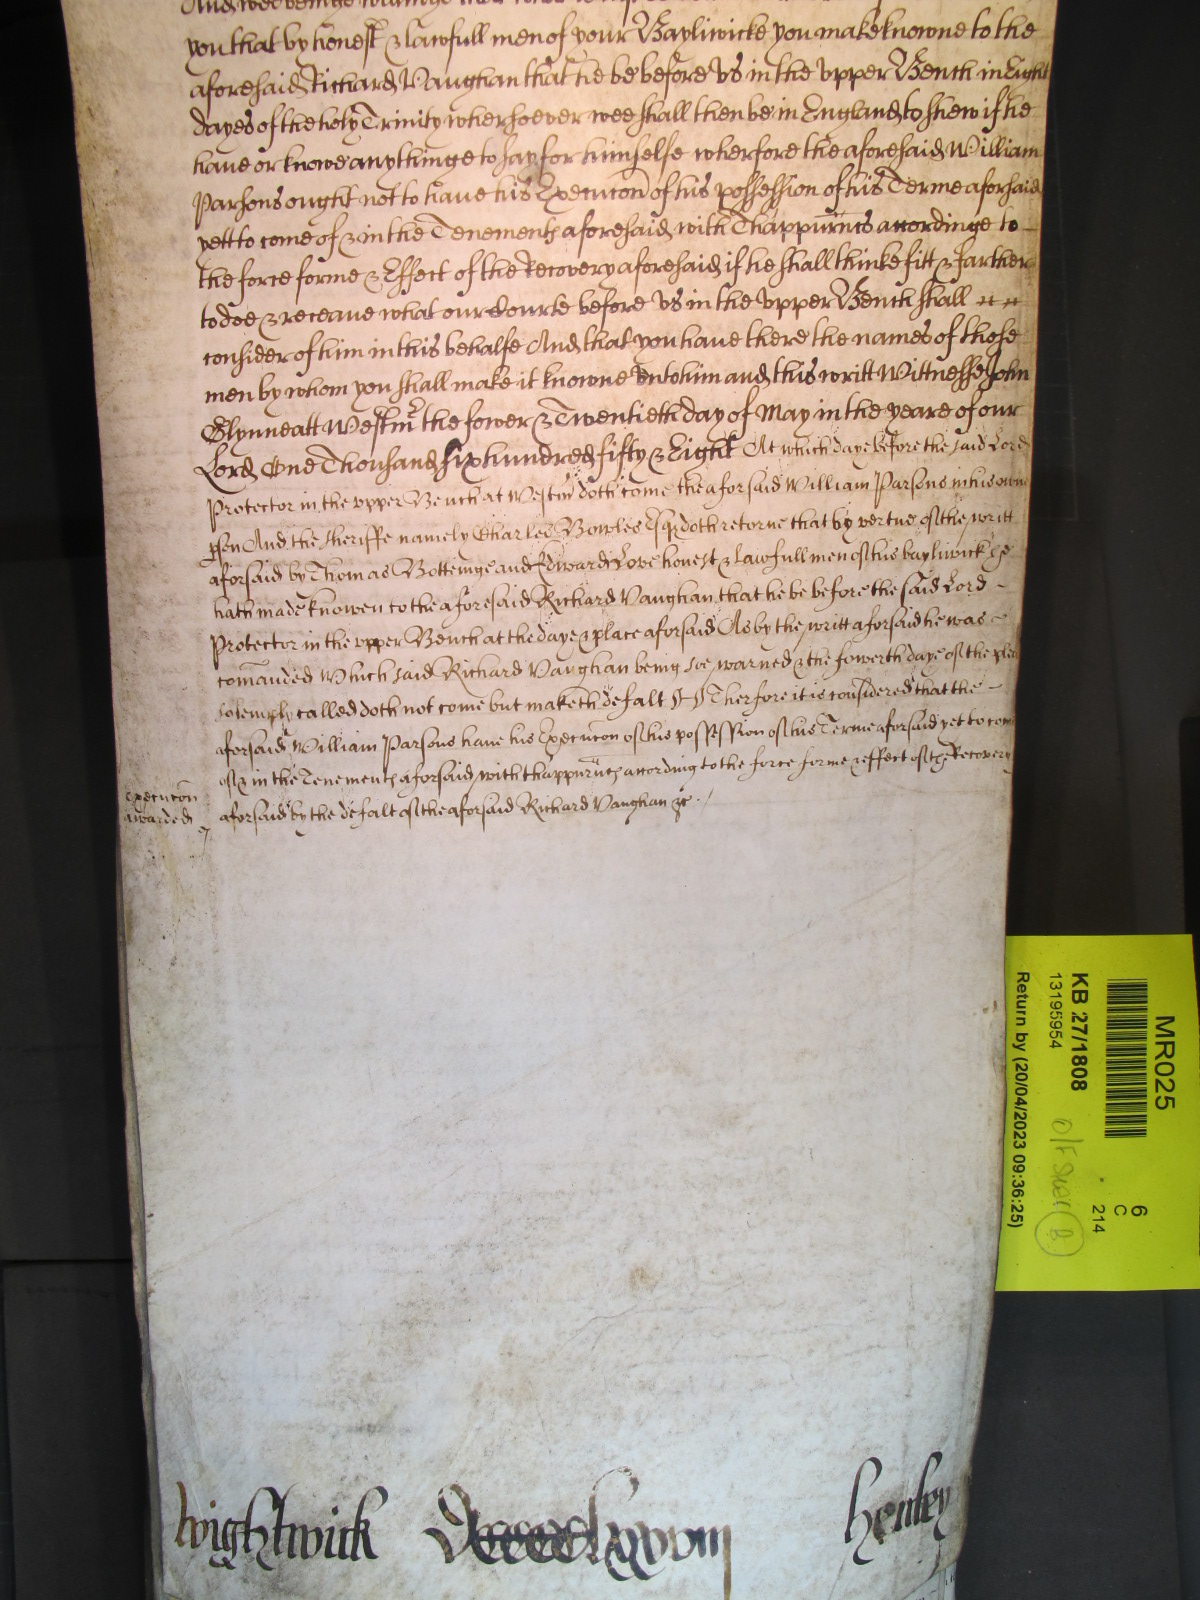 you that by honest & lawfull men of your Bayliwicke you make knowne to the
aforesaid Richard Vaughan that he be before vs in the vpper Bench in Eight
dayes of the holy Trinity whersoever wee shall then be in England to shew if he
have or knowe any thinge to say for himselfe wherfore the aforesaid William
Parsons ought not to have his Execucon of his possession of his Terme aforsaid
yett to come of & in the Tenements aforesaid with Thappurtn̄cs accordinge to
the force forme & Effect of the Recovery aforesaid if he shall thinke fitt & farther
to doe & receave what our Courte before vs in the vpper Bench shall
consider of him in this behalfe And that you have there the names of those
men by whom you shall make it knowne vnto him and this writt Wittnesse John
Glynne att Westm̄ the fower & Twentieth day of May in the yeare of our
Lord One Thousand six hundred fifty & Eight At which daye before the said Lord
Protector in the vpper Bench at Westm̄ doth come the aforsaid William Parsons in his owne
pson And the Sheriffe namely Charles Bowles Esq doth retorne that by vertue of the writt
aforsaid by Thomas Botteinge and Edward Love honest & lawfull men of his bayliwick he
hath made knowen to the aforesaid Richard Vaughan that he be before the said Lord
Protector in the vpper Bench at the daye & place aforsaid As by the writt aforsaid he was
com̄anded Which said Richard Vaughan being soe warned & the fowerth daye of the plea
solemply called doth not come but maketh defalt Therfore it is considered that the
aforsaid William Parsons have his Execucōn of his possession of his Terme aforsaid yet to come
of & in the Tenements aforsaid with thappurtn̄c according to the force forme & effect of the Recovery
Execucōn
awarded
aforsaid by the defalt of the aforsaid Richard Vaughan &c
Wightwick
Henley
MR025
KB 27/1808
13195954
Return by (20/04/2023 09:36:25)
6
C
214
B